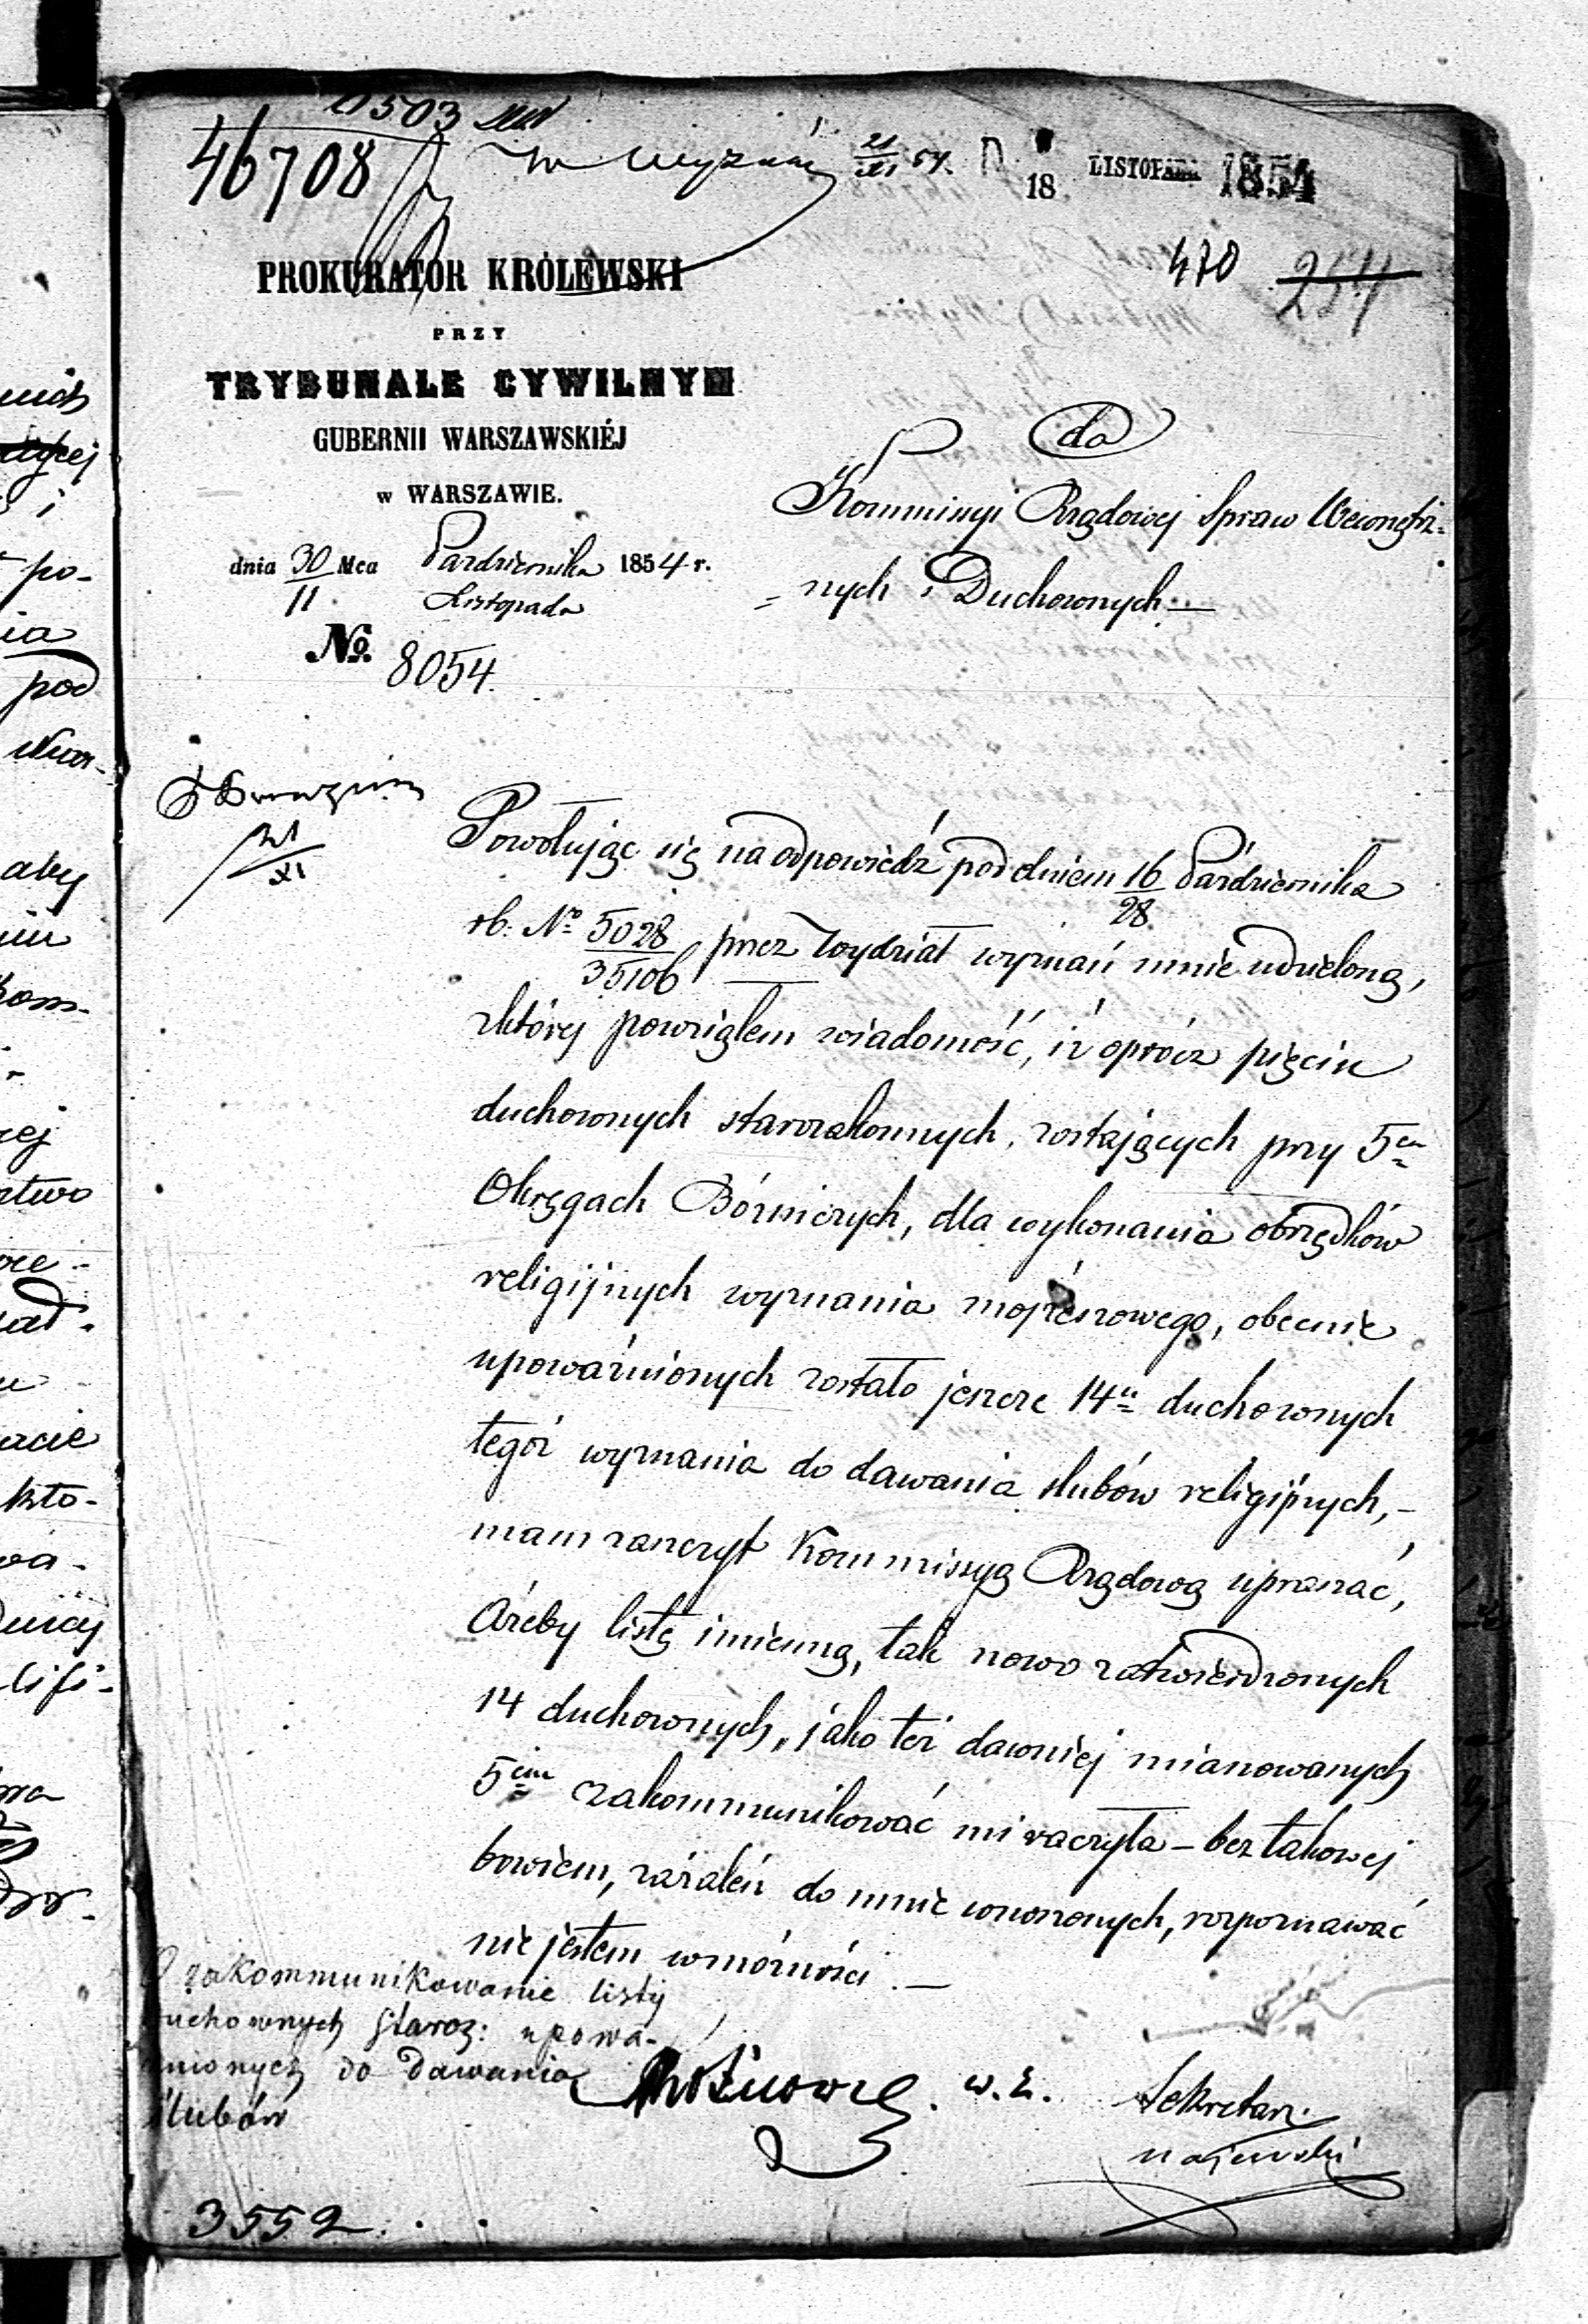 46708
21/XI 54.
D. 18 LISTOPADA 1854
470 254
PROKURATOR KRÓLEWSKI
PRZY
TRYBUNALE CYWILNYM
GUBERNII WARSZAWSKIÉJ
w WARSZAWIE.
dnia 30/11 Mca Pazdziernika/Listopada 1854 r.
No. 8054.
do
Kommissyi Rządowej Spraw Wewnętrz-
nych i Duchownych.
21/XI
Powołując się na odpowiedź pod dniem 16/28 Paździenika
rb: No 5028/35106 przez Wydział wyznań mnie udzieloną,
z której powziąłem wiadomość, iż oprócz pięciu
duchownych starozakonnych, zostających przy 5ciu
Okręgach Bóżniczych, dla wykonania obrzędków
religijnych wyznania mojżeszowego, obecnie
upoważnionych zostało jeszcze 14u duchownych
tegoż wyznania do dawania ślubów religijnych, –
mam zaszczyt Kommissyą Rządową upraszać,
ażeby listę imienną, tak nowo zatwierdzonych
14 duchownych, jako też dawniej mianowanych
5ciu zakommunikować mi raczyła – bez takowej
bowiem, zażaleń do mnie wnoszonych, rozpoznawać
nie jestem w możności. –
O zakommunikowanie listy
duchownych staroz: upowa-
żnionych do dawania
ślubów
w. z. Sekretarz
Majewski
3552.